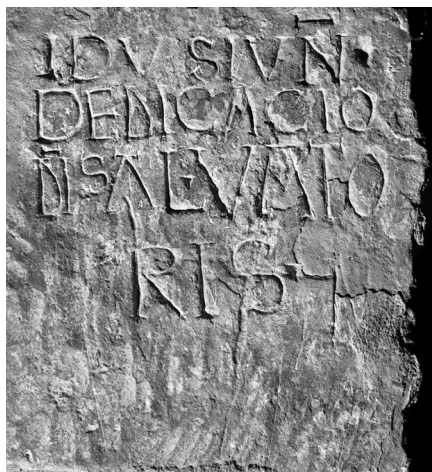 IDVS IVN̄·
DEDICACIO
SALVATO
RIS